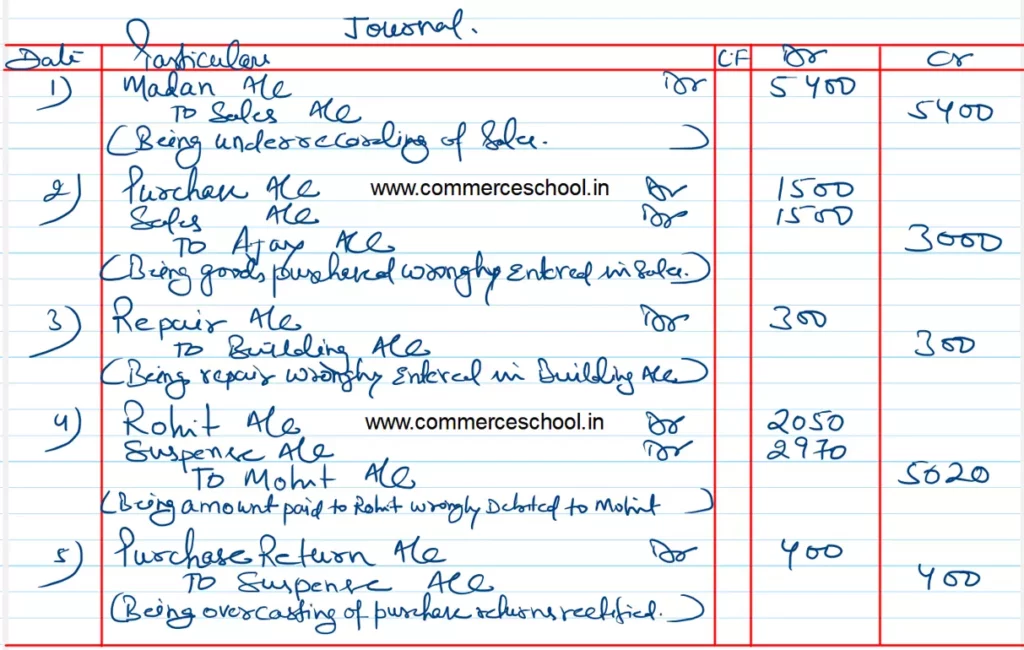 Journal.
Date Particulars CF Dr Cr
1) Madan A/c Dr 5400
To Sales A/c 5400
(Being underrecording of Sales.)
2) Purchase A/c www.commerceschool.in Dr 1500
Sales A/c Dr 1500
To Ajay A/c 3000
(Being goods purchased wrongly Entered in Sales.)
3) Repair A/c Dr 300
To Building A/c 300
(Being repair wrongly Entered in Building A/c)
4) Rohit A/c www.commerceschool.in Dr 2050
Suspense A/c Dr 2970
To Mohit A/c 5020
(Being amount paid to Rohit wrongly Debited to Mohit)
5) Purchase Return A/c Dr 400
To Suspense A/c 400
(Being overcasting of purchase returns rectified.)